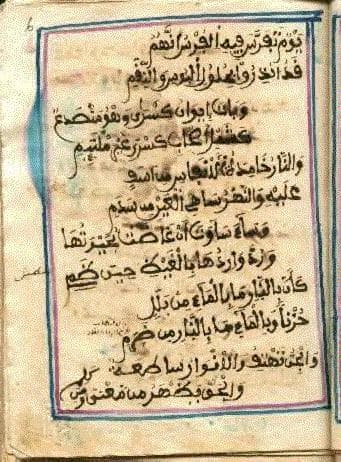 يَوْمٌ تَفَرَّسَ فِيهِ الْفُرْسُ أَنَّهُمُ
قَدْ أُنْذِرُوا بِحُلُولِ الْبُوسِ وَالنِّقَمِ
وَبَاتَ إِيوَانُ كِسْرَى وَهْوَ مُنْصَدِعٌ
كَشَمْلِ أَصْحَابِ كِسْرَى غَيْرَ مُلْتَئِمِ
وَالنَّارُ خَامِدَةُ الْأَنْفَاسِ مِنْ أَسَفٍ
عَلَيْهِ وَالنَّهْرُ سَاهِي الْعَيْنِ مِنْ سَدَمِ
وَسَاءَ سَاوَةَ أَنْ غَاضَتْ بُحَيْرَتُهَا
وَرُدَّ وَارِدُهَا بِالْغَيْظِ حِينَ ظَمِ
كَأَنَّ بِالنَّارِ مَا بِالْمَاءِ مِنْ بَلَلٍ
حُزْنًا وَبِالْمَاءِ مَا بِالنَّارِ مِنْ ضَرَمِ
وَالْجِنُّ تَهْتِفُ وَالْأَنْوَارُ سَاطِعَةٌ
وَالْحَقُّ يَظْهَرُ مِنْ مَعْنًى وَمِنْ كَلِمِ